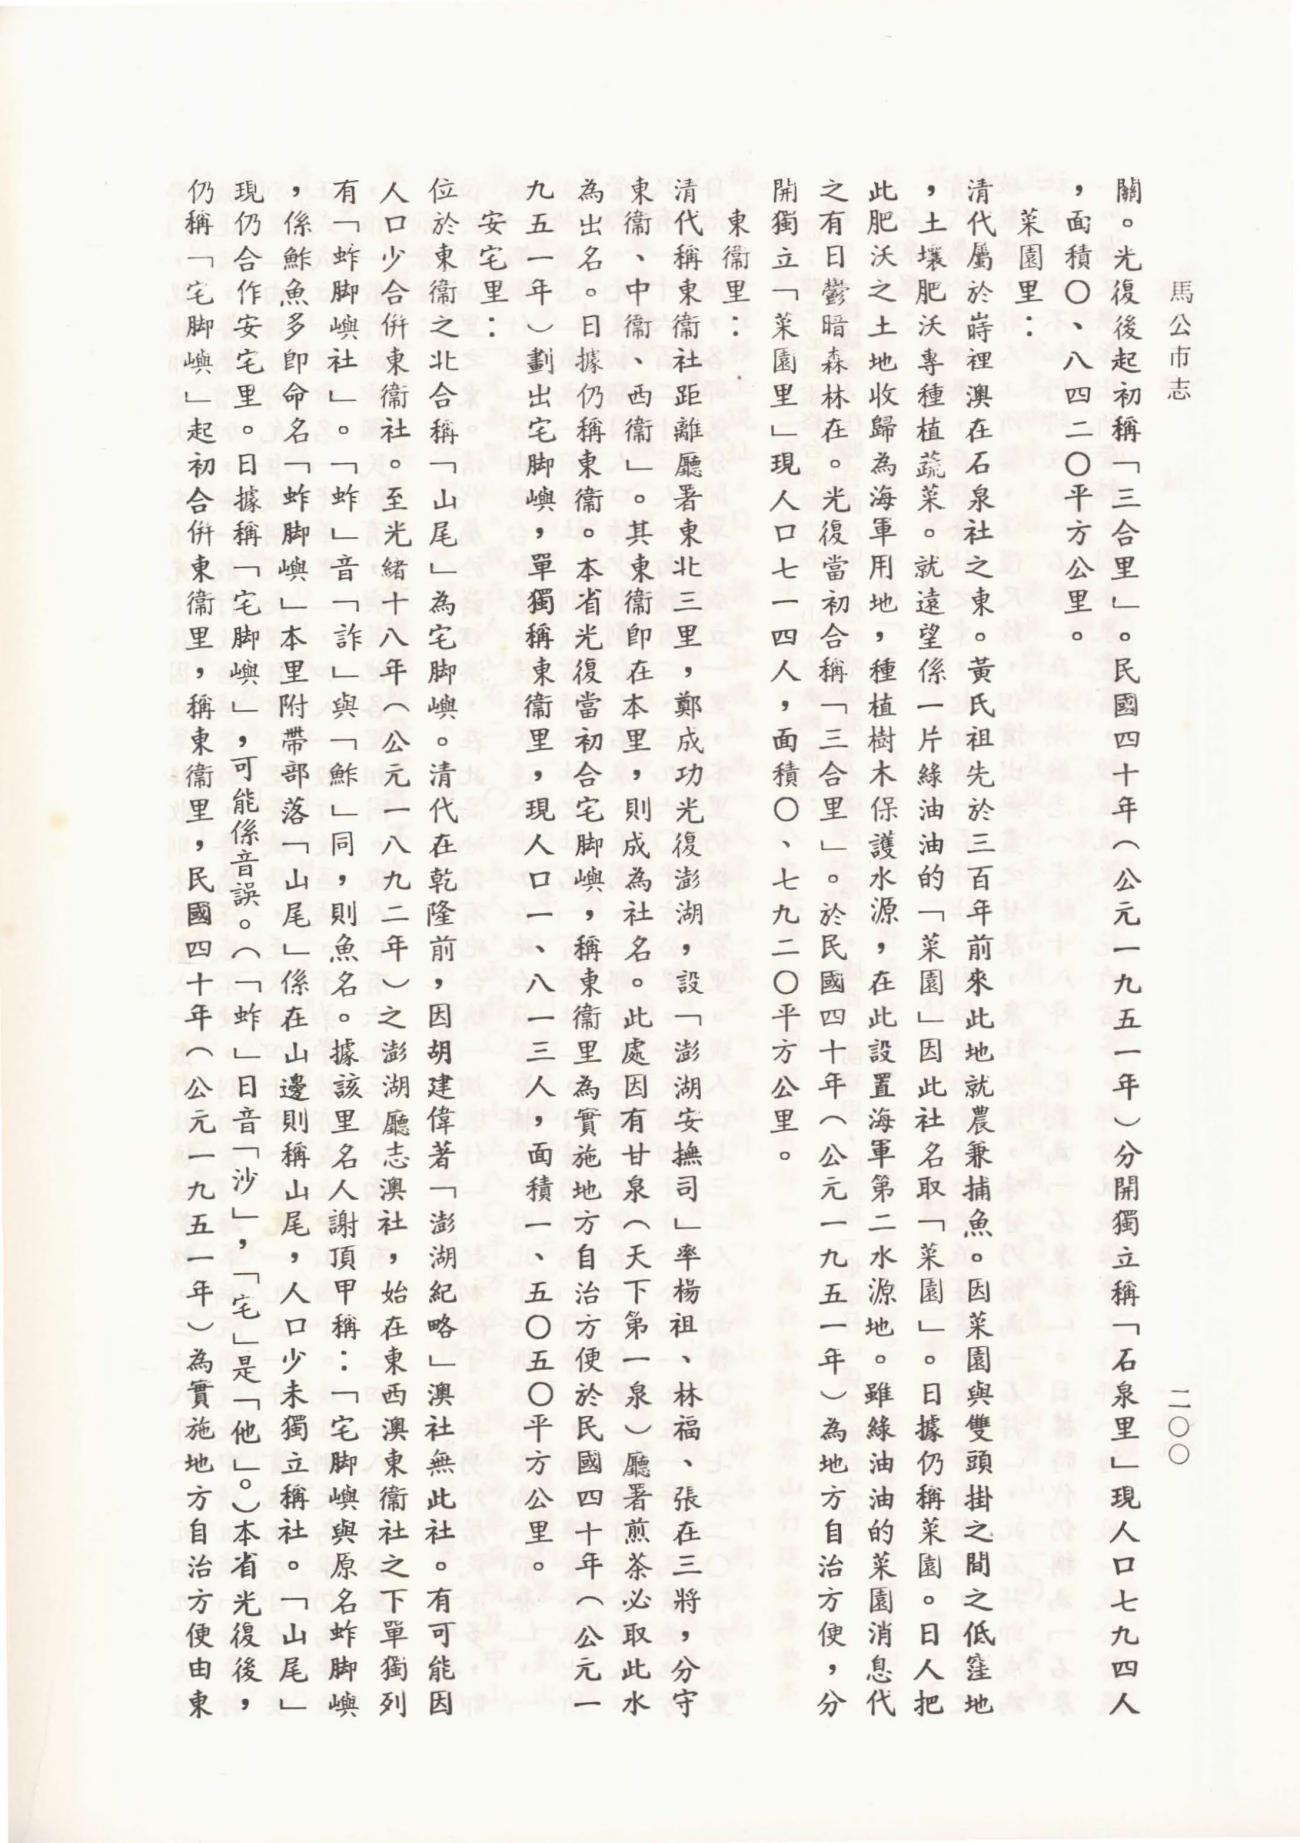 馬公市志
二〇〇
關。光復後起初稱「三合里」。民國四十年（公元一九五一年）分開獨立稱「石泉里」現人口七九四人
，面積〇、八四二〇平方公里。
菜園里：
清代屬於嵵裡澳在石泉社之東。黃氏祖先於三百年前來此地就農兼捕魚。因菜園與雙頭掛之間之低窪地
，土壤肥沃專種植蔬菜。就遠望係一片綠油油的「菜園」因此社名取「菜園」。日據仍稱菜園。日人把
此肥沃之土地收歸為海軍用地，種植樹木保護水源，在此設置海軍第二水源地。雖綠油油的菜園消息代
之有日鬱暗森林在。光復當初合稱「三合里」。於民國四十年（公元一九五一年）為地方自治方便，分
開獨立「菜園里」現人口七一四人，面積〇、七九二〇平方公里。
東衞里：
清代稱東衞社距離廳署東北三里，鄭成功光復澎湖，設「澎湖安撫司」率楊祖、林福、張在三將，分守
東衞、中衞、西衞」。其東衞即在本里，則成為社名。此處因有甘泉（天下第一泉）廳署煎茶必取此水
為出名。日據仍稱東衞。本省光復當初合宅脚嶼，稱東衞里為實施地方自治方便於民國四十年（公元一
九五一年）劃出宅脚嶼，單獨稱東衞里，現人口一、八一三人，面積一、五〇五〇平方公里。
安宅里：
位於東衞之北合稱「山尾」為宅脚嶼。清代在乾隆前，因胡建偉著「澎湖紀略」澳社無此社。有可能因
人口少合併東衞社。至光緒十八年（公元一八九二年）之澎湖廳志澳社，始在東西澳東衞社之下單獨列
有「蚱脚嶼社」。「蚱」音「詐」與「鮓」同，則魚名。據該里名人謝頂甲稱：「宅脚嶼與原名蚱脚嶼
，係鮓魚多卽命名「蚱脚嶼」本里附帶部落「山尾」係在山邊則稱山尾，人口少未獨立稱社。「山尾」
現仍合作安宅里。日據稱「宅脚嶼」，可能係音誤。（「蚱」日音「沙」，「宅」是「他」。）本省光復後，
仍稱「宅脚嶼」起初合併東衞里，稱東衞里，民國四十年（公元一九五一年）為實施地方自治方便由東